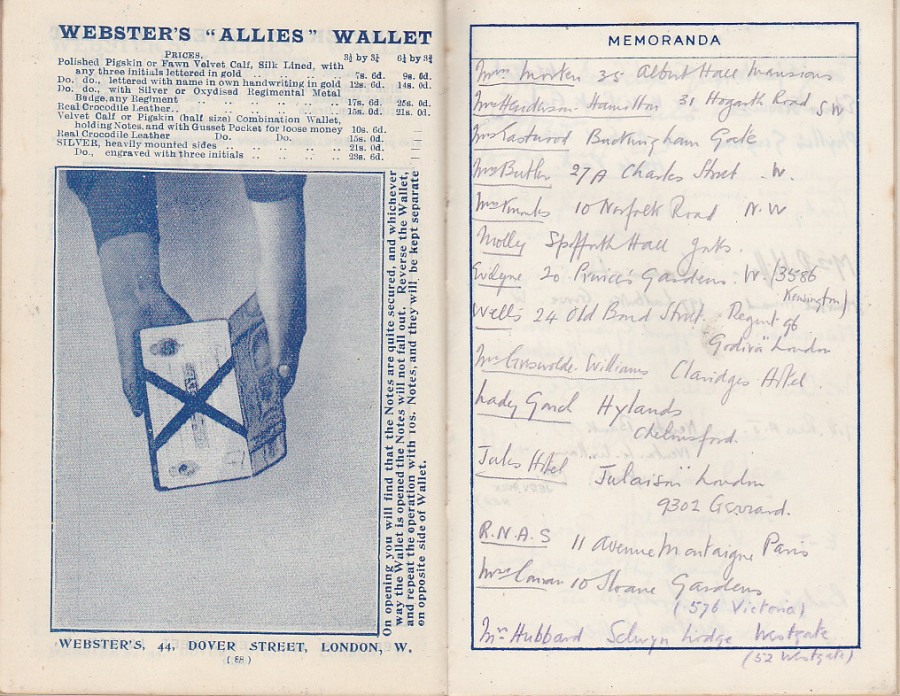 WEBSTER'S "ALLIES" WALLET
PRICES. 3¾ by 3¾ 6¼ by 3¾
Polished Pigskin or Fawn Velvet Calf, Silk Lined, with
any three initials lettered in gold .. .. .. 7s. 6d. 9s. 0d.
Do. do., lettered with name in own handwriting in gold 12s. 6d. 14s. 0d.
Do. do., with Silver or Oxydised Regimental Metal
Badge, any Regiment .. .. .. .. .. 17s. 6d. 25s. 0d.
Real Crocodile Leather .. .. .. .. .. 15s. 0d. 21s. 0d.
Velvet Calf or Pigskin (half size) Combination Wallet,
holding Notes, and with Gusset Pocket for loose money 10s. 6d.
Real Crocodile Leather Do. Do. 15s. 0d.
SILVER, heavily mounted sides .. .. .. .. 21s. 0d.
Do., engraved with three initials .. .. .. 23s. 6d.
On opening you will find that the Notes are quite secured, and whichever
way the Wallet is opened the Notes will not fall out. Reverse the Wallet,
and repeat the operation with 10s. Notes, and they will be kept separate
on opposite side of Wallet.
WEBSTER'S, 44, DOVER STREET, LONDON, W.
MEMORANDA
Morten 35 Albert Hall Mansions
Mrs Henderson Hamilton 31 Hogarth Road S.W
Mrs Eastwood Buckingham Gate
Mrs Butler 27A Charles Street W.
10 Norfolk Road N.W
Molly Spofforth Hall Yorks.
Evelyne 20 Princes Gardens. W. (3586
Kensington)
Wells 24 Old Bond Street. Regent 96
"Godiva" London
Mrs Griswolde. Williams Claridges Hotel.
Lady Gooch Hylands
Chelmsford.
Jules Hotel "Julaison" London
9302 Gerrard.
R.N.A.S 11 Avenue Montaigne Paris
10 Sloane Gardens
(576 Victoria)
Mrs Hubbard Selwyn Lodge Westgate
(52 Westgate)